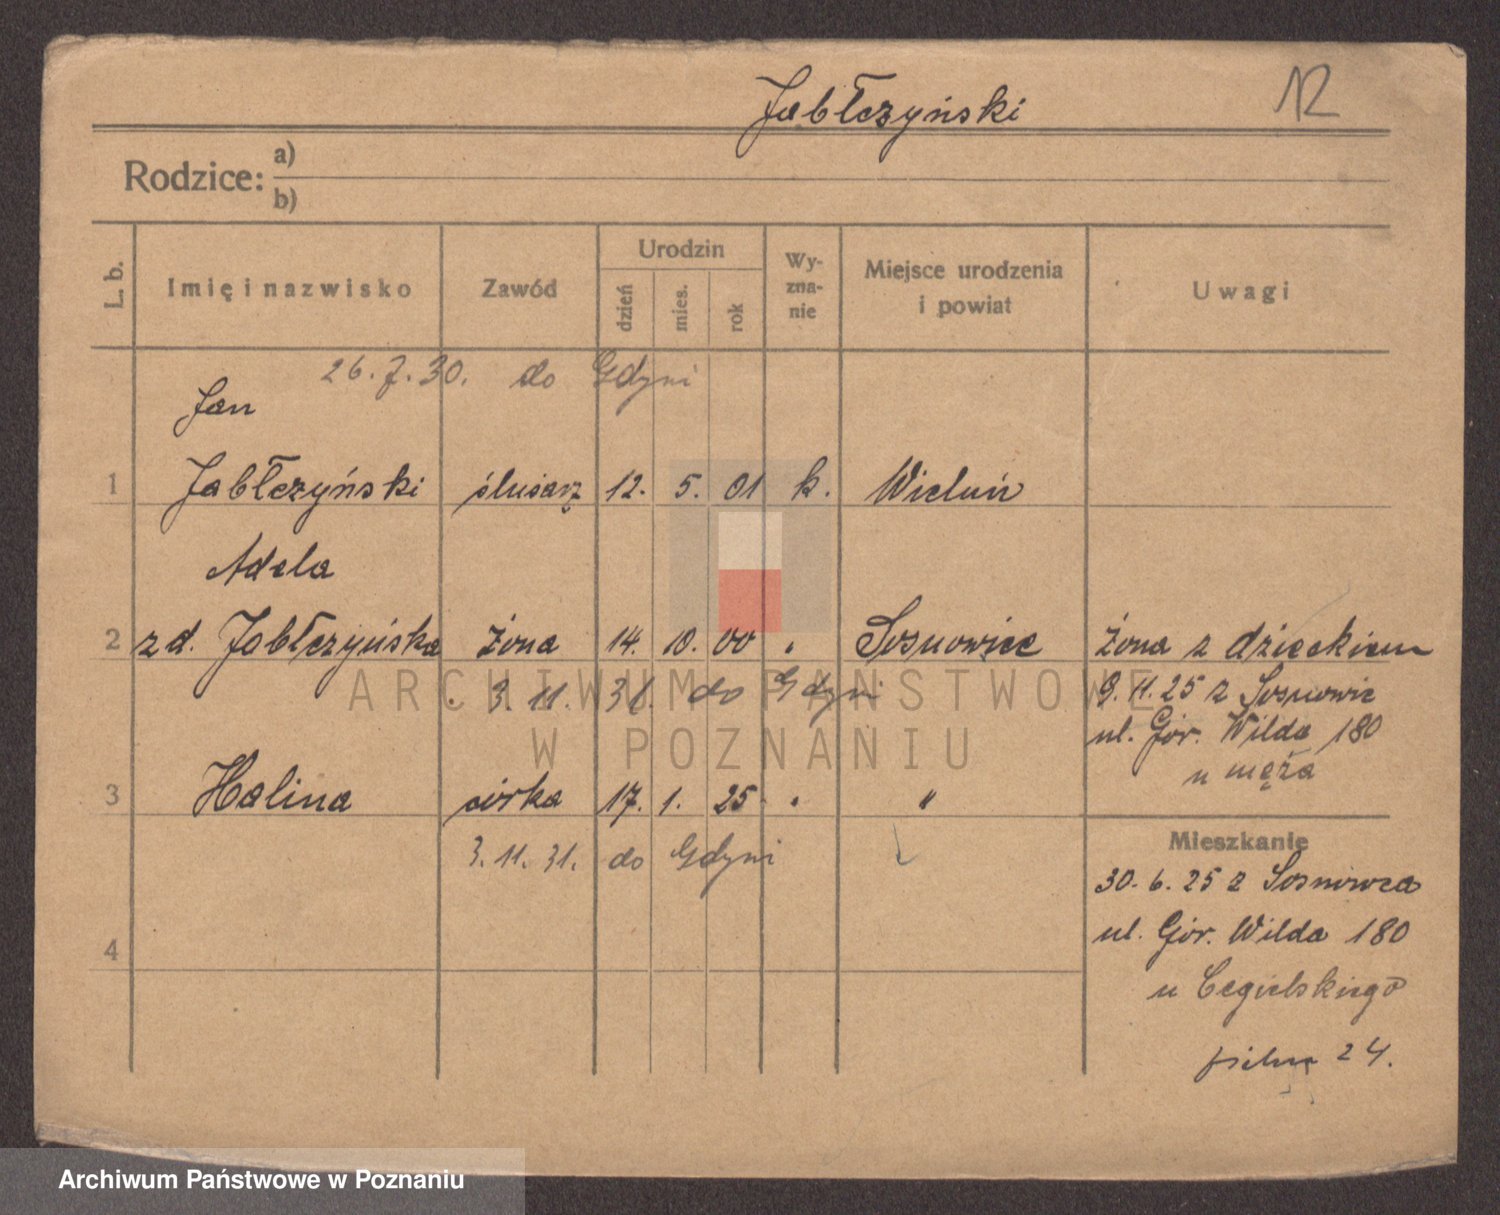 Jabłczyński 12
Rodzice: a)
b)
L. b. Imię i nazwisko Zawód Urodzin dzień mies. rok Wy-zna-nie Miejsce urodzenia i powiat Uwagi
26. 7. 30. do Gdyni
Jan
1 Jabłczyński ślusarz 12. 5. 01 k. Wieluń
Adela
2 z d. Jabłczyńska żona 14. 10. 00 " Sosnowice żona z dzieckiem
3. 11. 31. do Gdyni 9. 11. 25 z Sosnowic
ul. Gór. Wilda 180
u męża
3 Halina córka 17. 1. 25 " "
Mieszkanie
3. 11. 31. do Gdyni
30. 6. 25 z Sosnowca
ul. Gór. Wilda 180
4
u Cegielskiego
24.
ARCHIWUM PAŃSTWOWE
W POZNANIU
Archiwum Państwowe w Poznaniu